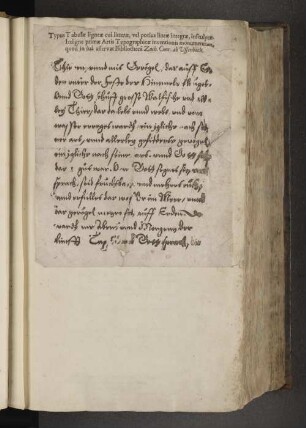 Typus Tabulæ ligneæ cui literæ, vel potius lineæ integræ, insculptæ
insigne primæ Artis Typographicæ inventionis monumentum,
quod in suâ asservat Bibliothecâ Zach. Conr. ab Uffenbach.
Thier en, vnnd mit Gevögel, das auff Er
den vnder der Feste des Himmels
vnnd Gott schuff grosse Walfische vnd alle
Thier, das da lebt vnnd webt, vnd vom
wasser erreget wardt, ein jgliche nach sei
ner art, vnnd allerley gefidertes gevögel,
ein jglichs nach seiner art, vnnd Gott sahe
das es gut war. Vnd Gott segnet sie, vnd
sprach, seit fruchtbar, vnnd mehret euch,
vnnd erfüllet das wasser im Meer, vnnd
das gevögel mehre sich auff Erden
wardt auß Abent vnnd Morgen der
Tag, vnnd Gott sprach, die